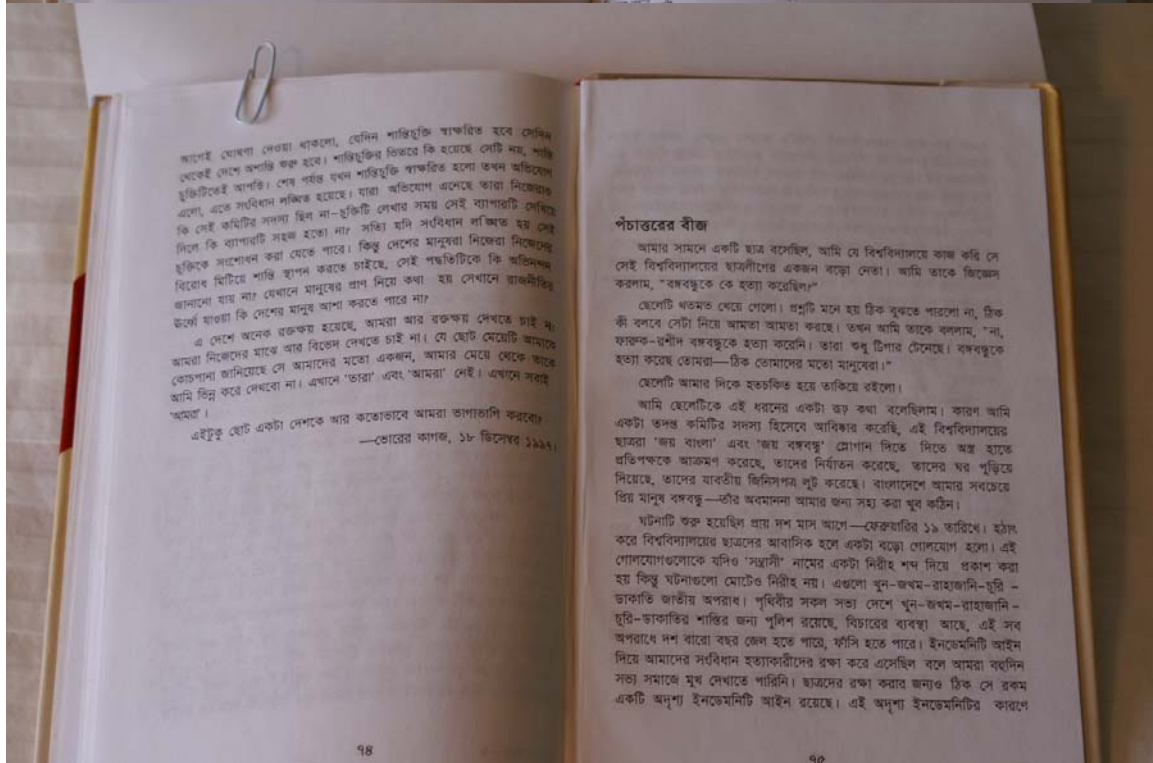 আগেই ঘোষণা দেওয়া থাকলো, যেদিন শান্তিচুক্তি স্বাক্ষরিত হবে সেদিন
থেকেই দেশে অশান্তি শুরু হবে। শান্তিচুক্তির ভিতরে কি হয়েছে সেটি নয়, শান্তি
চুক্তিটিতেই আপত্তি। শেষ পর্যন্ত যখন শান্তিচুক্তি স্বাক্ষরিত হলো তখন অভিযোগ
এলো, এতে সংবিধান লঙ্ঘিত হয়েছে। যারা অভিযোগ এনেছে তারা নিজেরাও
কি সেই কমিটির সদস্য ছিল না—চুক্তিটি লেখার সময় সেই ব্যাপারটি দেখিয়ে
দিলে কি ব্যাপারটি সহজ হতো না? সত্যি যদি সংবিধান লঙ্ঘিত হয় সেই
চুক্তিকে সংশোধন করা যেতে পারে। কিন্তু দেশের মানুষরা নিজেরা নিজেদের
বিরোধ মিটিয়ে শান্তি স্থাপন করতে চাইছে, সেই পদ্ধতিটিকে কি অভিনন্দন
জানানো যায় না? যেখানে মানুষের প্রাণ নিয়ে কথা হয় সেখানে রাজনীতির
ঊর্ধ্বে যাওয়া কি দেশের মানুষ আশা করতে পারে না?
এ দেশে অনেক রক্তক্ষয় হয়েছে, আমরা আর রক্তক্ষয় দেখতে চাই না।
আমরা নিজেদের মাঝে আর বিভেদ দেখতে চাই না। যে ছোট মেয়েটি আমাকে
কোচপানা জানিয়েছে সে আমাদের মতো একজন, আমার মেয়ে থেকে তাকে
আমি ভিন্ন করে দেখবো না। এখানে ‘তারা’ এবং ‘আমরা’ নেই। এখানে সবাই
‘আমরা’।
এইটুকু ছোট একটা দেশকে আর কতোভাবে আমরা ভাগাভাগি করবো?
—ভোরের কাগজ, ১৮ ডিসেম্বর ১৯৯৭।
৭৪
পঁচাত্তরের বীজ
আমার সামনে একটি ছাত্র বসেছিল, আমি যে বিশ্ববিদ্যালয়ে কাজ করি সে
সেই বিশ্ববিদ্যালয়ের ছাত্রলীগের একজন বড়ো নেতা। আমি তাকে জিজ্ঞেস
করলাম, “বঙ্গবন্ধুকে কে হত্যা করেছিল?”
ছেলেটি থতমত খেয়ে গেলো। প্রশ্নটি মনে হয় ঠিক বুঝতে পারলো না, ঠিক
কী বলবে সেটা নিয়ে আমতা আমতা করছে। তখন আমি তাকে বললাম, “না,
ফারুক-রশীদ বঙ্গবন্ধুকে হত্যা করেনি। তারা শুধু ট্রিগার টেনেছে। বঙ্গবন্ধুকে
হত্যা করেছ তোমরা—ঠিক তোমাদের মতো মানুষেরা।”
ছেলেটি আমার দিকে হতচকিত হয়ে তাকিয়ে রইলো।
আমি ছেলেটিকে এই ধরনের একটা রূঢ় কথা বলেছিলাম। কারণ আমি
একটা তদন্ত কমিটির সদস্য হিসেবে আবিষ্কার করেছি, এই বিশ্ববিদ্যালয়ের
ছাত্ররা ‘জয় বাংলা’ এবং ‘জয় বঙ্গবন্ধু’ স্লোগান দিতে দিতে অস্ত্র হাতে
প্রতিপক্ষকে আক্রমণ করেছে, তাদের নির্যাতন করেছে, তাদের ঘর পুড়িয়ে
দিয়েছে, তাদের যাবতীয় জিনিসপত্র লুট করেছে। বাংলাদেশে আমার সবচেয়ে
প্রিয় মানুষ বঙ্গবন্ধু—তাঁর অবমাননা আমার জন্য সহ্য করা খুব কঠিন।
ঘটনাটি শুরু হয়েছিল প্রায় দশ মাস আগে—ফেব্রুয়ারির ১৯ তারিখে। হঠাৎ
করে বিশ্ববিদ্যালয়ের ছাত্রদের আবাসিক হলে একটা বড়ো গোলযোগ হলো। এই
গোলযোগগুলোকে যদিও ‘সন্ত্রাসী’ নামের একটা নিরীহ শব্দ দিয়ে প্রকাশ করা
হয় কিন্তু ঘটনাগুলো মোটেও নিরীহ নয়। এগুলো খুন-জখম-রাহাজানি-চুরি -
ডাকাতি জাতীয় অপরাধ। পৃথিবীর সকল সভ্য দেশে খুন-জখম-রাহাজানি-
চুরি-ডাকাতির শাস্তির জন্য পুলিশ রয়েছে, বিচারের ব্যবস্থা আছে, এই সব
অপরাধে দশ বারো বছর জেল হতে পারে, ফাঁসি হতে পারে। ইনডেমনিটি আইন
দিয়ে আমাদের সংবিধান হত্যাকারীদের রক্ষা করে এসেছিল বলে আমরা বহুদিন
সভ্য সমাজে মুখ দেখাতে পারিনি। ছাত্রদের রক্ষা করার জন্যও ঠিক সে রকম
একটি অদৃশ্য ইনডেমনিটি আইন রয়েছে। এই অদৃশ্য ইনডেমনিটির কারণে
৭৫